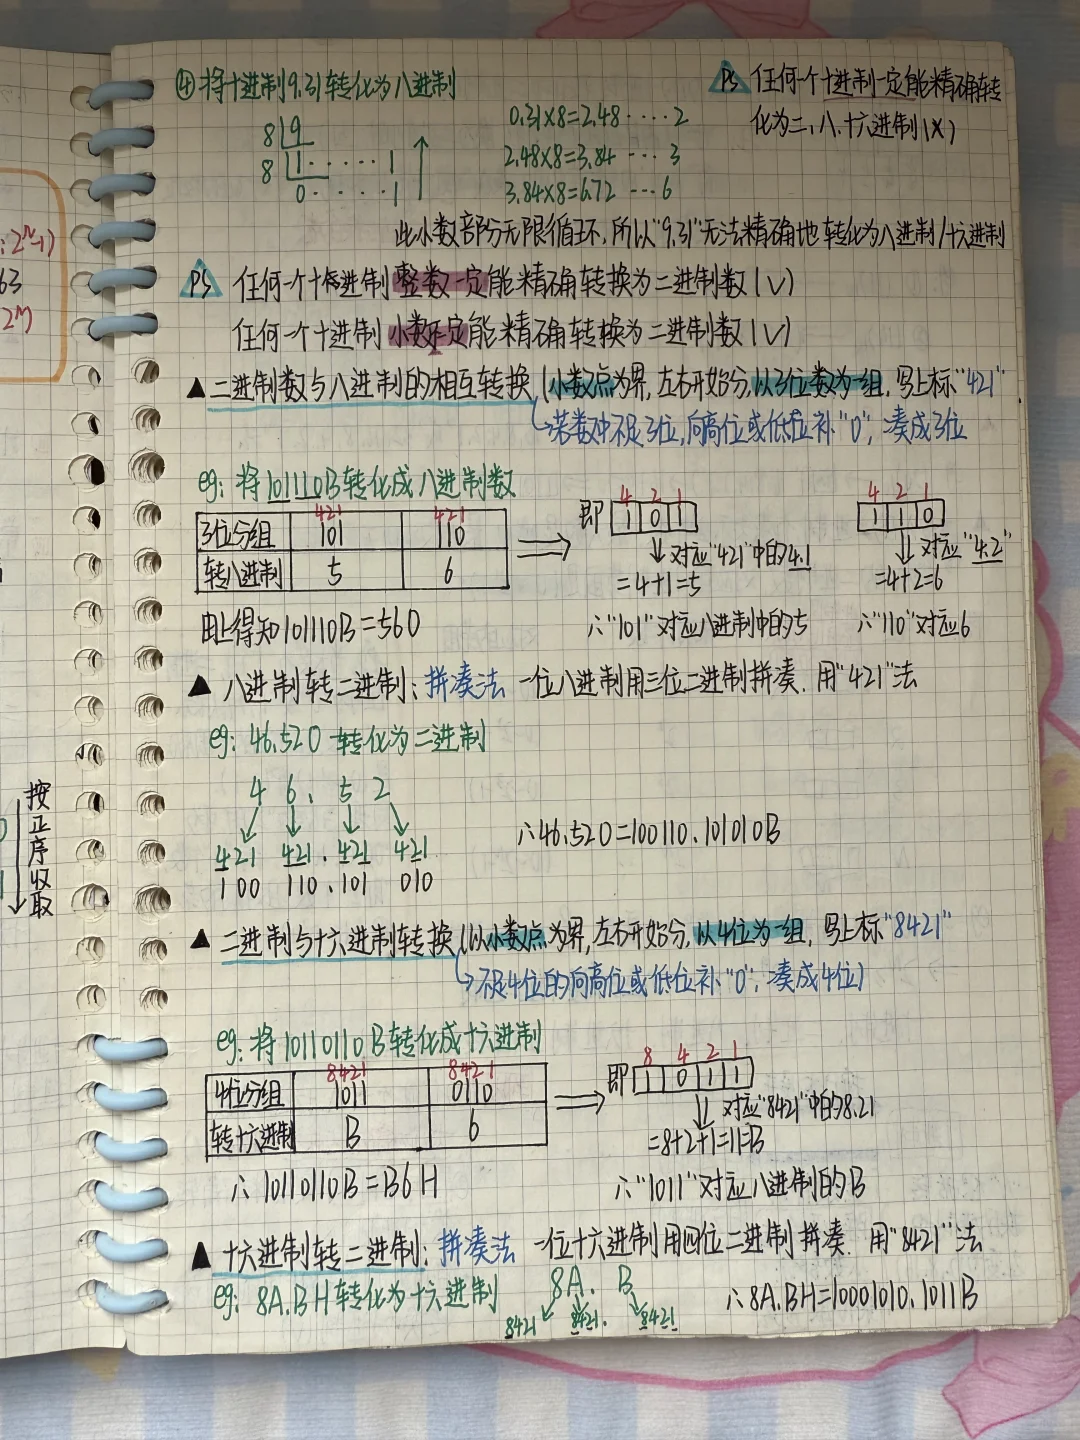 ④将十进制9.31转化为八进制
8 9
8 1 ······ 1
0 ······ 1
0.31×8=2.48 ···· 2
2.48×8=3.84 ··· 3
3.84×8=6.72 ··· 6
PS 任何一个十进制一定能精确转
化为二、八、十六进制(×)
此小数部分无限循环,所以"9.31"无法精确地转化为八进制/十六进制
PS 任何一个十进制整数一定能精确转换为二进制数(√)
任何一个十进制小数不一定能精确转换为二进制数(√)
▲二进制数与八进制的相互转换(小数点为界,左右开始分,以3位数为一组,写上标"421"
↳若数中不足3位,向高位或低位补"0",凑成3位
eg: 将101110B转化成八进制数
3位分组 421 101 421 110
转八进制 5 6
即 4 2 1
1 0 1
↓对应"421"中的4.1
=4+1=5
∴"101"对应八进制中的5
4 2 1
1 1 0
↓对应"4.2"
=4+2=6
∴"110"对应6
由上得知101110B=56O
▲ 八进制转二进制: 拼凑法 一位八进制用三位二进制拼凑. 用"421"法
eg: 46.52O 转化为二进制
4 6 . 5 2
421 421 . 421 421
100 110 . 101 010
∴46.52O=100110.101010B
▲ 二进制与十六进制转换(以小数点为界,左右开始分,以4位为一组,写上标"8421"
↳不足4位的向高位或低位补"0",凑成4位)
eg: 将10110110B转化成十六进制
4位分组 8421 1011 8421 0110
转十六进制 B 6
即 8 4 2 1
1 0 1 1
↓对应"8421"中的8.2.1
=8+2+1=11=B
∴10110110B=B6H
∴"1011"对应八进制的B
▲ 十六进制转二进制: 拼凑法 一位十六进制用四位二进制拼凑. 用"8421"法
eg: 8A.BH转化为十六进制
8A. B
8421 8421. 8421
∴8A.BH=10001010.1011B
:2ⁿ-1)
63
按
正
序
收
取